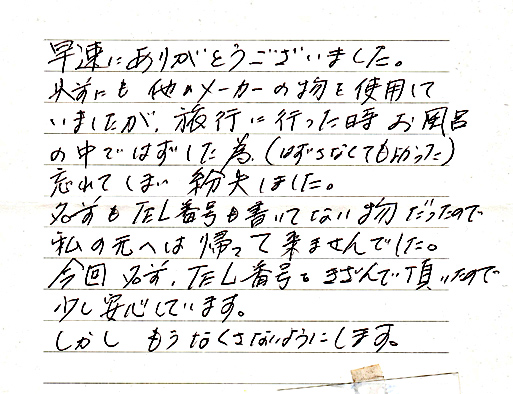 早速にありがとうございました。
以前にも他のメーカーの物を使用して
いましたが、旅行に行った時お風呂
の中ではずした為、(はずさなくてもよかった)
忘れてしまい紛失しました。
名前もTEL番号も書いてない物だったので
私の元へは帰って来ませんでした。
今回名前、TEL番号もきざんで頂いたので
少し安心しています。
しかしもうなくさないようにします。